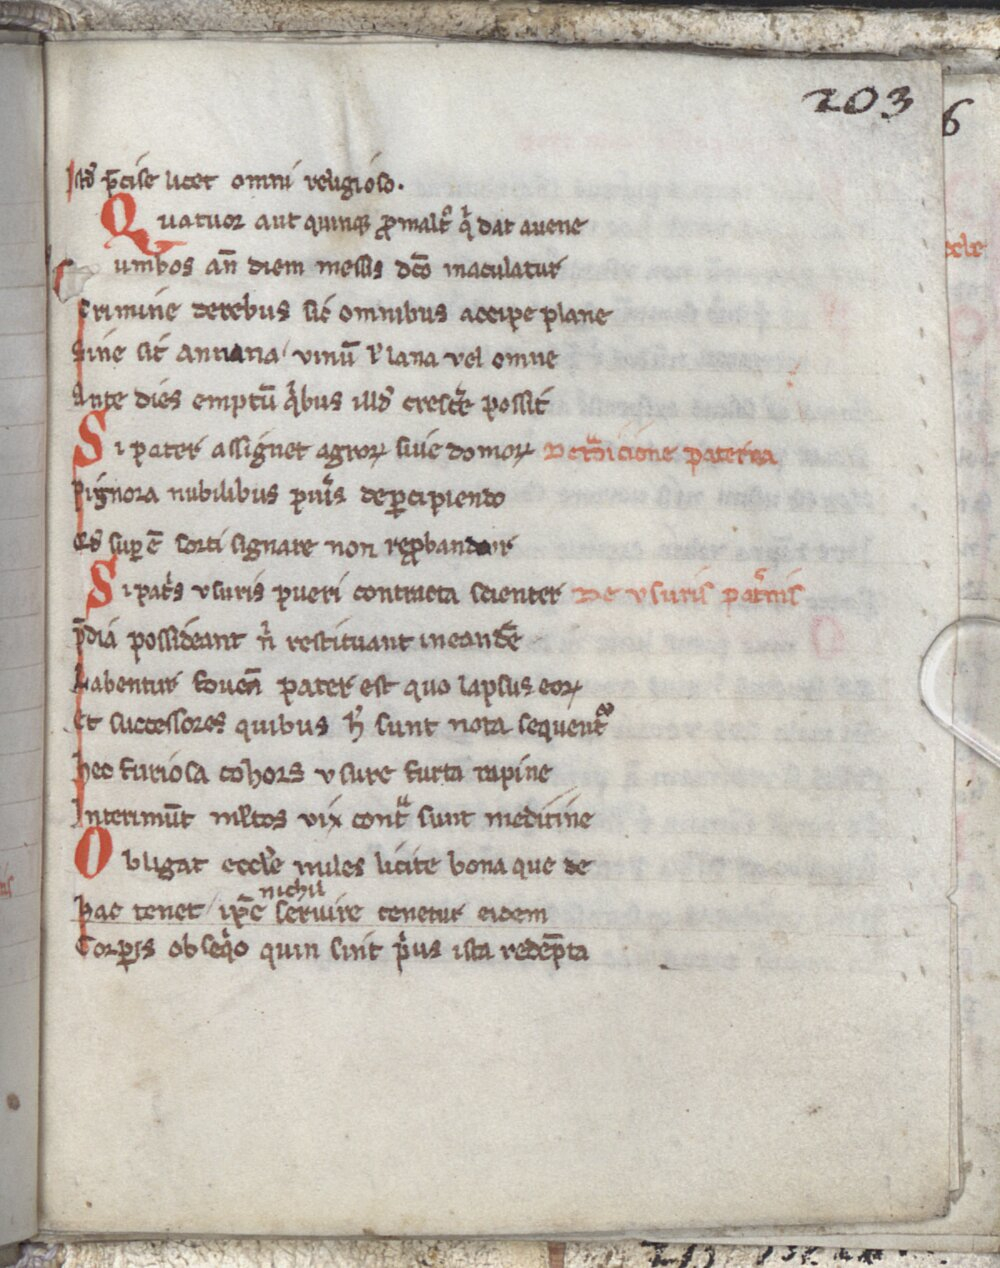 203
Istđ p̄cise licet omni religioso.
Quatuor aut quinqꝫ ꝓ maltꝰ qͥ dat auene
umbos an̄ diem messis dc̄o maculatur
Crimine de rebus sic omnibus accipe plane
Siue sit annona / vinū ł lana vel omne
Ante dies emptū qͥbus illđ cresce᷑ possit
Si pater assignet agroꝝ siue domoꝝ paterna
Pignora nubilibus pue᷑is de ꝑcipiendo
sup ē sorti signare non rep̄bandur
Si pat᷑s vsuris pueri contracta scienter De vsuris pat᷑nis
p̄dia possideant n̄ restituant in eandē
Labentur foueā pater est quo lapsus eoꝝ
Et successores quibus h̄ sunt nota sequent᷑
Hec furiosa cohors vsure furta rapine
Interimūt mltos vix contͣ sunt medicine
Obligat eccl̄e miles licite bona que de
nichil
Hac tenet / ip̄e seruire tenetur eidem
Corꝑis obseqͥo quin sint pͥus ista redēpta